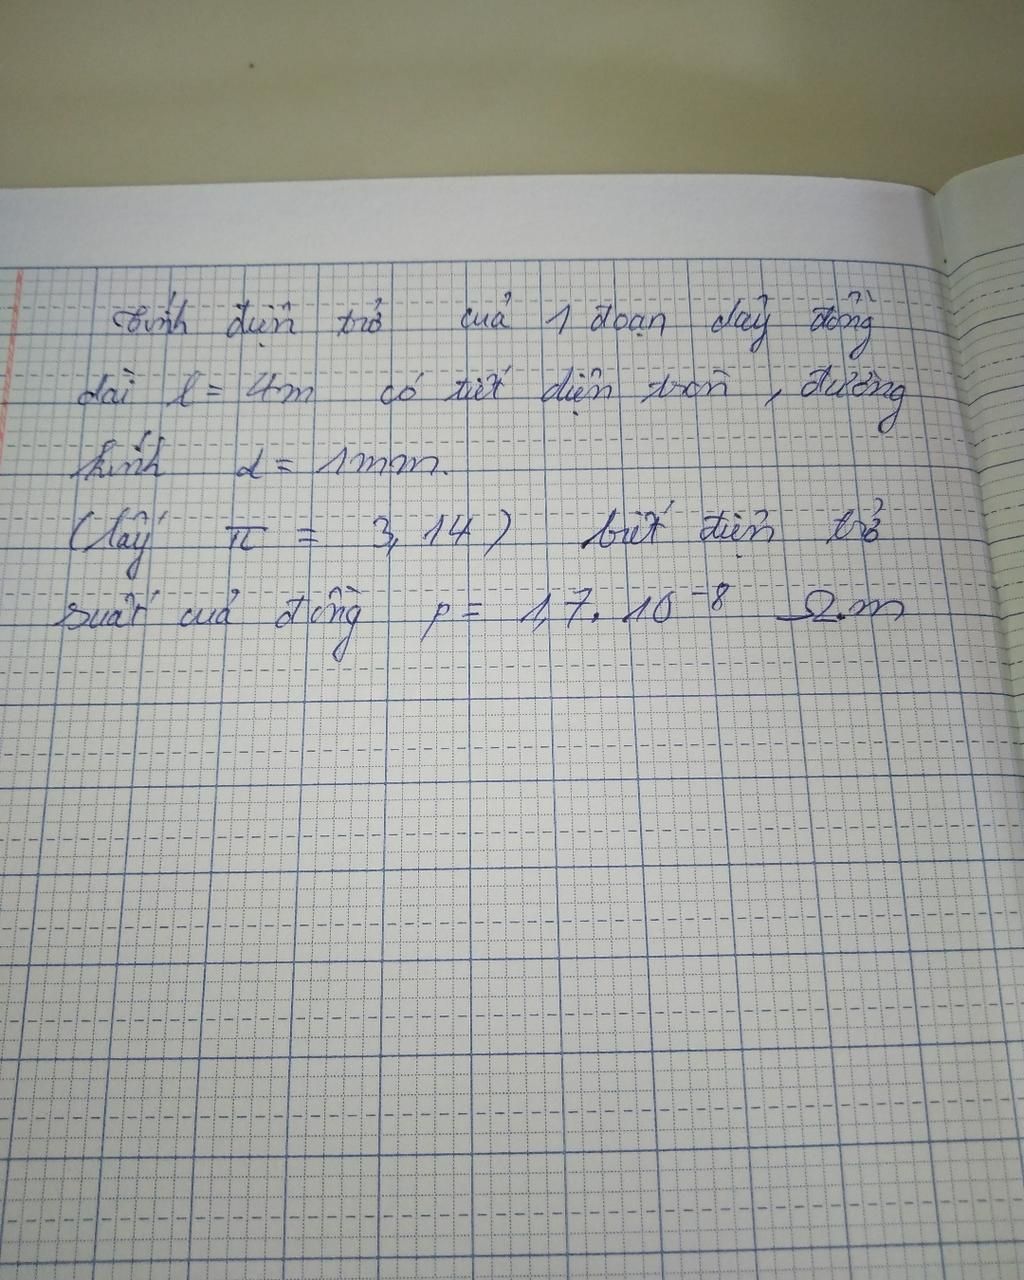 Tính điện trở của 1 đoạn dây đồng
dài l = 4m có tiết diện tròn, đường
kính d = 1mm.
(lấy π = 3,14) biết điện trở
suất của đồng ρ = 1,7. 10⁻⁸ Ω.m